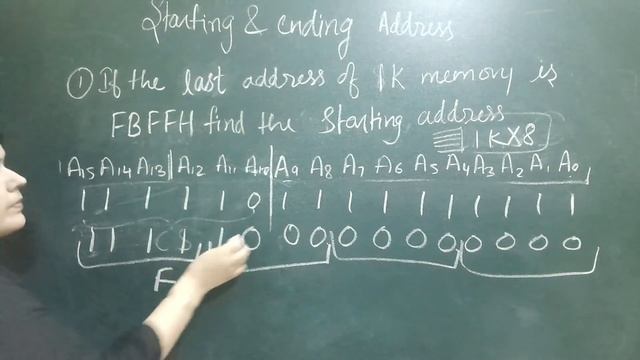 Starting & ending Address
① If the last address of 1K memory is
FBFFH find the Starting address
1K×8
A15 A14 A13 A12 A11 A10 A9 A8 A7 A6 A5 A4 A3 A2 A1 A0
1 1 1 1 1 0 1 1 1 1 1 1 1 1 1 1
1 1 1 1 1 0 0 0 0 0 0 0 0 0 0 0
F